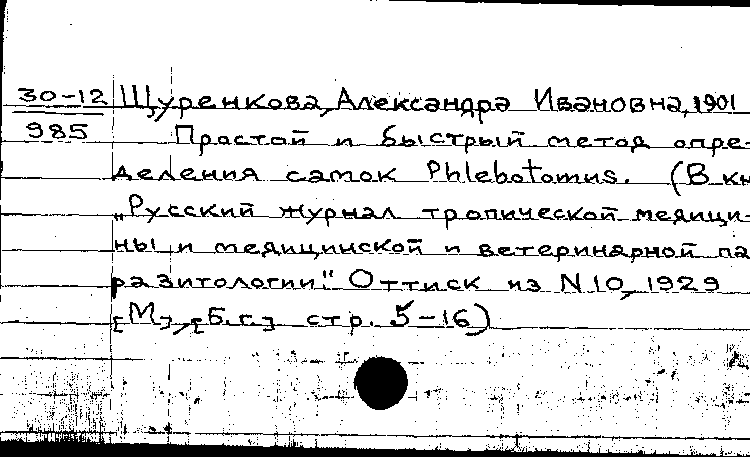 30-12 Щуренкова, Александра Ивановна, 1901
985 Простой и быстрый метод опре-
деления самок Phlebotomus. (В кн
„Русский журнал тропической медици-
ны и медицинской и ветеринарной па
разитологии." Оттиск из N 10, 1929
[М], [Б.г.] стр. 5-16)